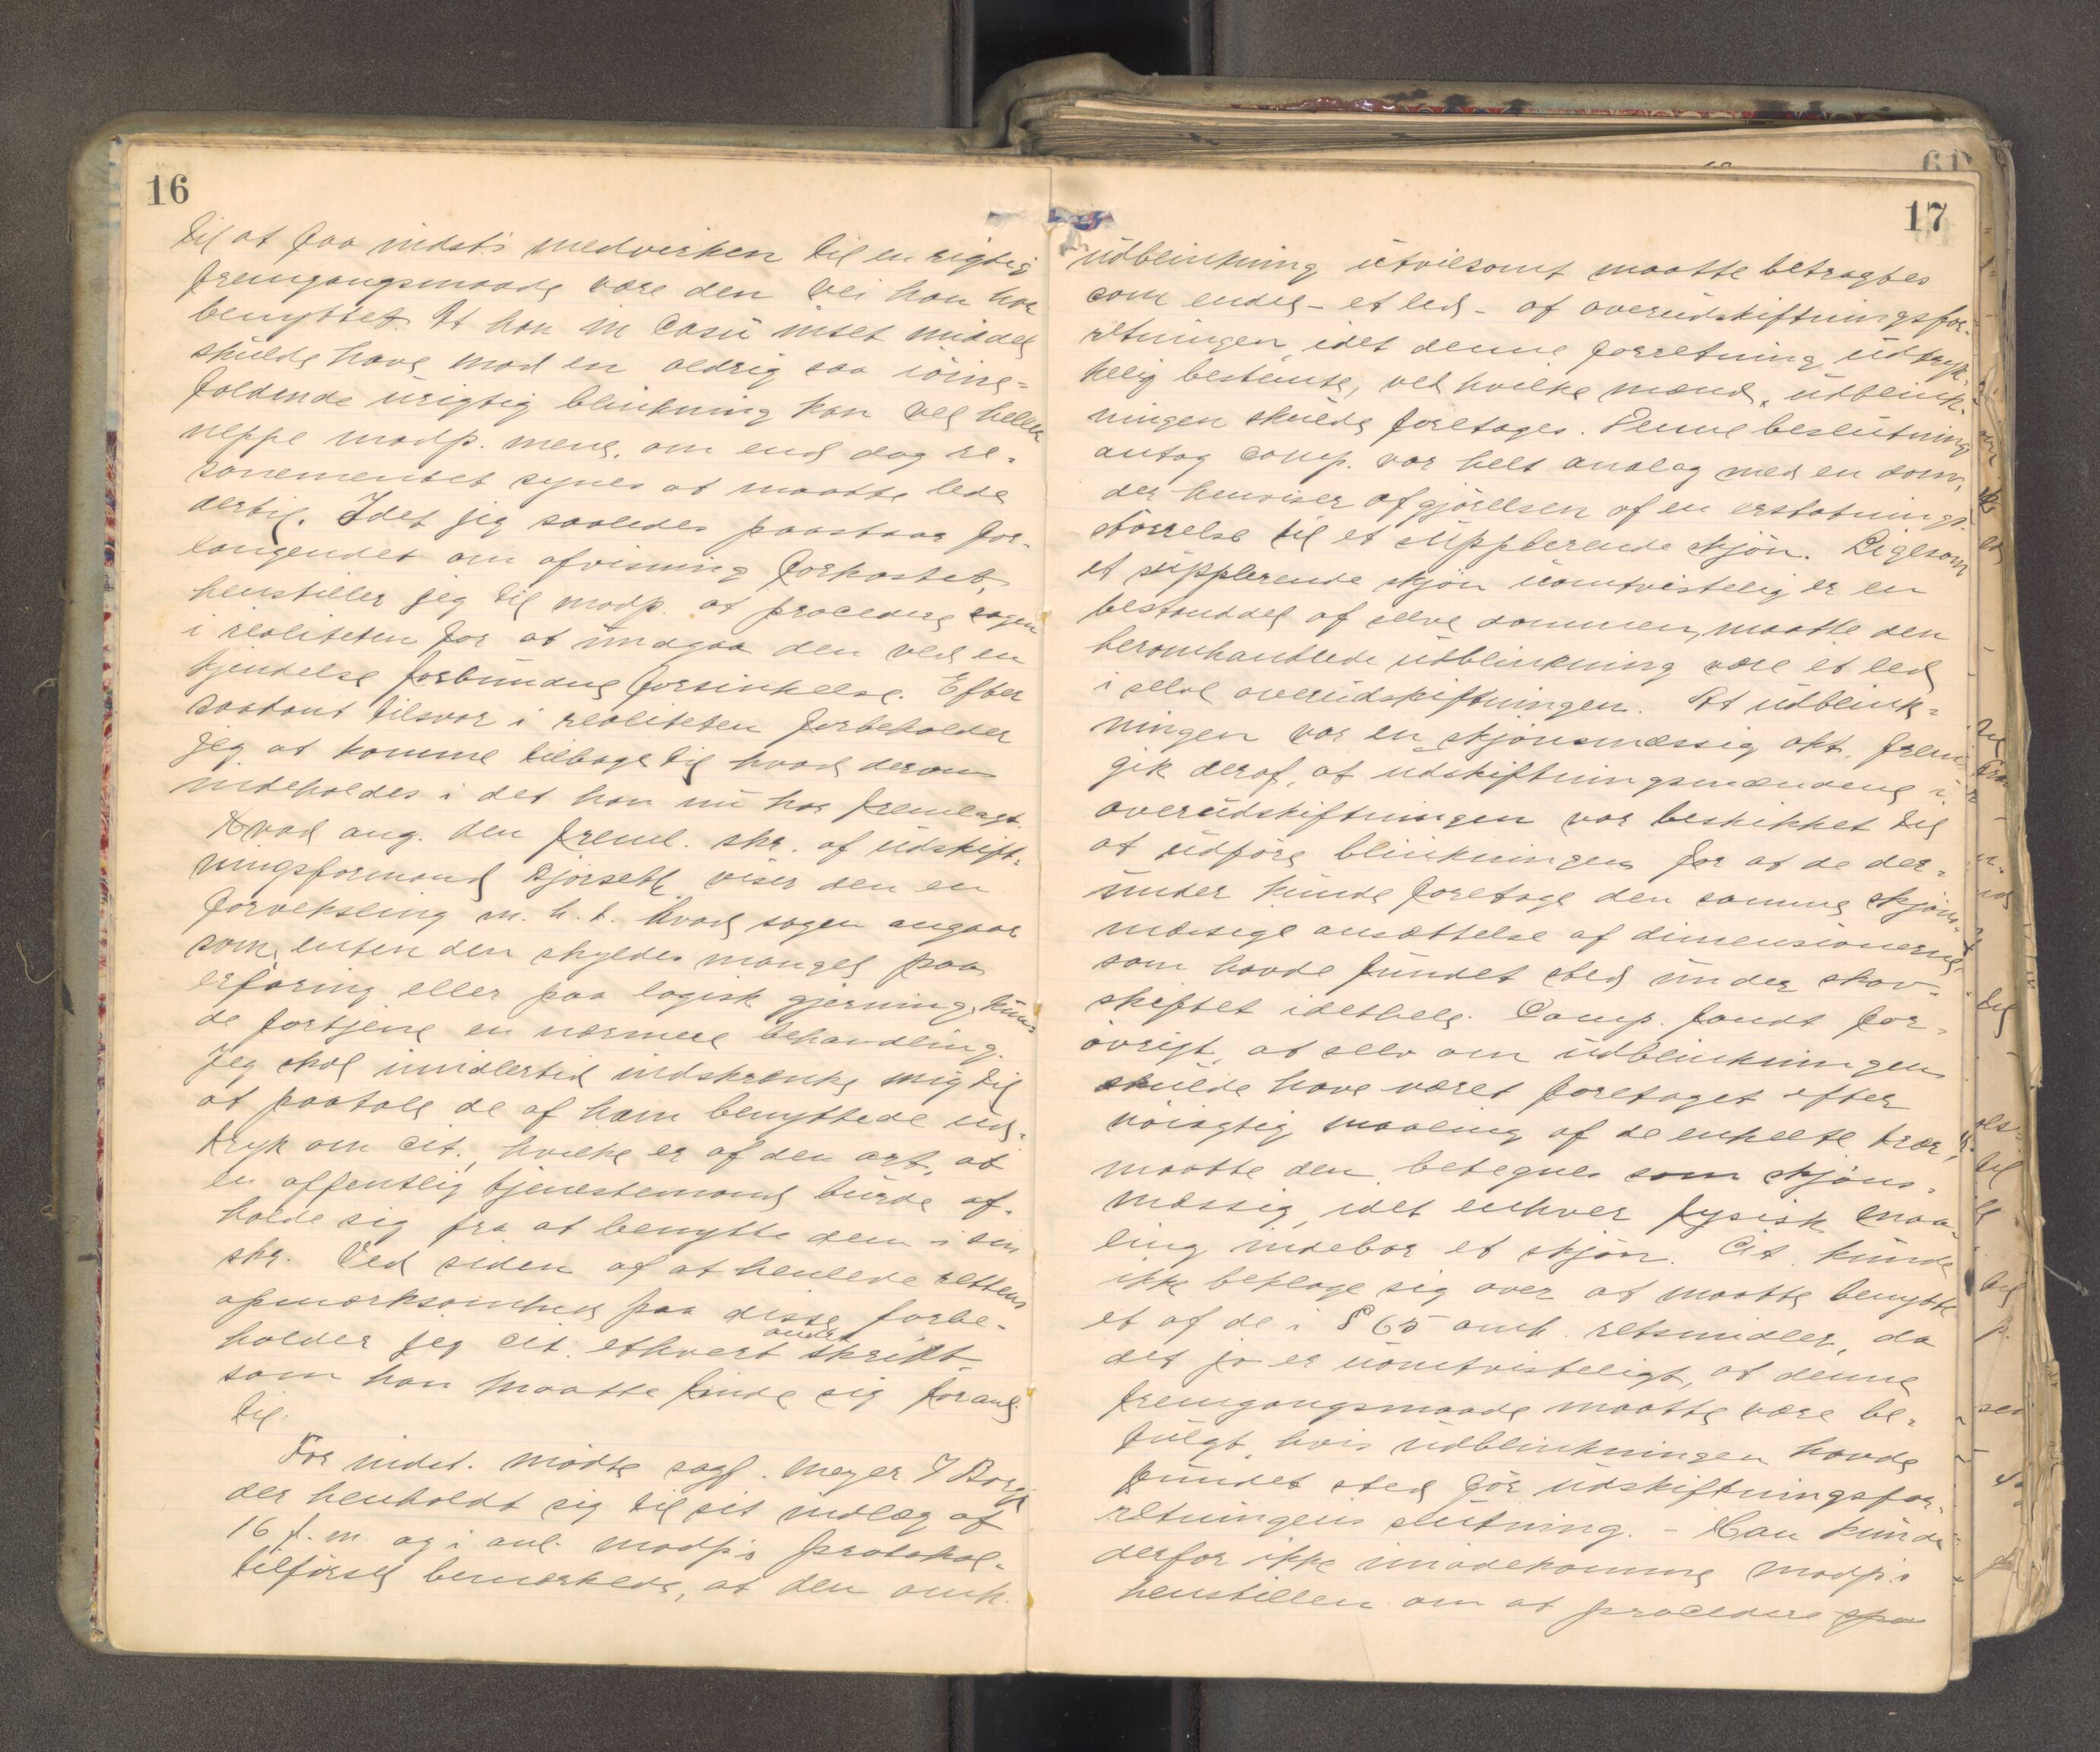 16
til at faa indst's medvirken til en rigtig
fremgangsmaade være den vei han har
benyttet. At han in casu intet middel
skulde have mod en aldrig saa iöine-
faldende urigtig blinkning kan vel heller
neppe modp. mene, om end dog re-
sonementet synes at maatte lede
dertil. Idet jeg saaledes paastaar for-
langendet om afvisning forkastet,
henstiller jeg til modp. at procedere sagen
i realiteten for at undgaa den ved en
kjendelse forbundne forsinkelse. Efter
saadant tilsvar i realiteten forbeholder
jeg at komme tilbage til hvad derom
indeholdes i det han nu har fremlagt.
Hvad ang. den freml. skr. af udskift-
ningsformand Bjørsett, viser den en
forveksling m. h. t. hvad sagen angaar
som, enten den skyldes mangel paa
erfaring eller paa logisk gjerning, kun-
de fortjene en nærmere behandling.
Jeg skal imidlertid indskrænke mig til
at paatale de af ham benyttede ud-
tryk om cit., hvilke er af den art, at
en offentlig tjenestemand burde af-
holde sig fra at benytte dem i sin
skr. Ved siden af at henlede rettens
opmærksomhed paa disse forbe-
holder jeg cit. ethvert andet skridt
som han maatte finde sig foranl
til.
For indst. mödte sagf. Meyer I Borge
der henholdt sig til sit indlæg af
16 f. m. og i anl. modp's protokol-
tilförsel bemærkede, at den omh.
17
udblinkning utvilsomt maatte betragtes
som endel - et led - af overudskiftningsfor-
retningen, idet denne forretning udtryk-
kelig bestemte, ved hvilke mænd udblink-
ningen skulde foretages. Denne beslutning
antog comp. var helt analog med en dom,
der henviser afgjörelsen af en erstatnings-
störrelse til et supplerende skjön. Ligesom
et supplerende skjön uomtvistelig er en
bestanddel af selve dommen, maatte den
heromhandlede udblinkning være et led
i selve overudskiftningen. At udblink-
ningen var en skjönsmæssig akt, frem-
gik deraf, at udskiftningsmændene i
overudskiftningen var beskikket til
at udföre blinkningen for at de der-
under kunde foretage den samme skjöns-
mæsige ansættelse af dimensionerne
som havde fundet sted under skov-
skiftet idethele. Comp. fandt for-
övrigt, at selv om udblinkningen
skulde have været foretaget efter
nöiagtig maaling af de enkelte trær,
maatte den betegnes som skjöns-
mæssig, idet enhver fysisk maa-
ling indebær et skjön. Cit. kunde
ikke beklage sig over at maatte benytte
et af de i § 65 omh. retsmidler, da
det jo er uomtvisteligt, at denne
fremgangsmaade maatte være be-
fulgt, hvis udblinkningen havde
fundet sted för udskiftningsfor-
retningens slutning. - Han kunde
derfor ikke imödekomme modp's
henstillen om at procedere
61